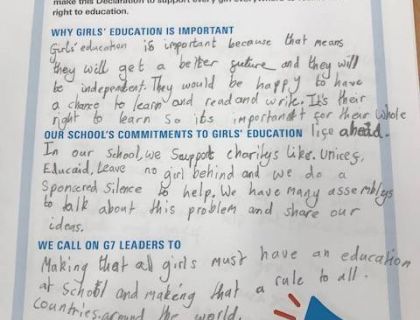 make this Declaration to support every girl everywhere to
right to education.
WHY GIRLS' EDUCATION IS IMPORTANT
Girls' education is important because that means
they will get a better future and they will
be independent. They would be happy to have
a chance to learn and read and write. It's their
right to learn So its important for their whole
OUR SCHOOL'S COMMITMENTS TO GIRLS' EDUCATION life ahead.
In our school, we Support charitys like. Unicef,
Educaid, Leave no girl behind and we do a
Sponcered Silence to help. We have many assemblys
to talk about this problem and share our
ideas.
WE CALL ON G7 LEADERS TO
Making that all girls must have an education
at School and making that a rule to all.
Countries around the world.